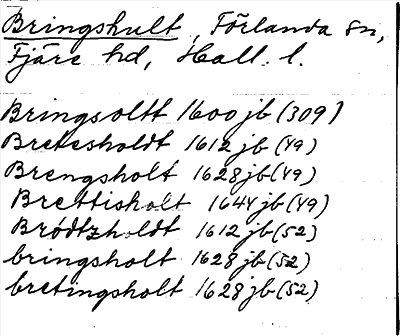 Bringshult, Förlanda sn,
Fjäre hd, Hall. l.
Bringsoltt 1600 jb (309)
Bretesholdt 1612 jb (49)
Brengsholt 1628 jb (49)
Brettisholt 1644 jb (49)
Brödtzholdt 1612 jb (52)
bringsholt 1628 jb (52)
bretingsholt 1628 jb (52)